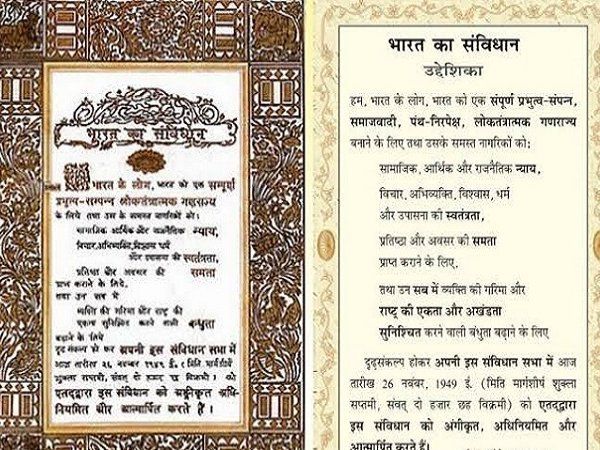 भारत का संविधान
हम भारत के लोग, भारत को एक सम्पूर्ण
प्रभुत्व-सम्पन्न लोकतंत्रात्मक गणराज्य
के लिये तथा उस के समस्त नागरिकों को:
सामाजिक आर्थिक और राजनैतिक न्याय,
विचार,अभिव्यक्ति,विश्वास धर्म
और उपासना की स्वतंत्रता,
प्रतिष्ठा और अवसर की समता
प्राप्त कराने के लिये,
तथा उन सब में
व्यक्ति की गरिमा और राष्ट्र की
एकता सुनिश्चित करने वाली बन्धुता
बढ़ाने के लिये
दृढ़ संकल्प हो कर अपनी इस संविधान सभा में
आज तारीख २६ नवम्बर १९४९ ई. (मिति मार्गशीर्ष
शुक्ला सप्तमी, संवत् दो हजार छः विक्रमी) को
एतद्द्वारा इस संविधान को अङ्गीकृत अधि-
नियमित और आत्मार्पित करते हैं ।
भारत का संविधान
उद्देशिका
हम, भारत के लोग, भारत को एक संपूर्ण प्रभुत्व-संपन्न,
समाजवादी, पंथ-निरपेक्ष, लोकतंत्रात्मक गणराज्य
बनाने के लिए तथा उसके समस्त नागरिकों को:
सामाजिक, आर्थिक और राजनैतिक न्याय,
विचार, अभिव्यक्ति, विश्वास, धर्म
और उपासना की स्वतंत्रता,
प्रतिष्ठा और अवसर की समता
प्राप्त कराने के लिए,
तथा उन सब में व्यक्ति की गरिमा और
राष्ट्र की एकता और अखंडता
सुनिश्चित करने वाली बंधुता बढ़ाने के लिए
दृढ़संकल्प होकर अपनी इस संविधान सभा में आज
तारीख 26 नवंबर, 1949 ई. (मिति मार्गशीर्ष शुक्ला
सप्तमी, संवत् दो हजार छह विक्रमी) को एतद्द्वारा
इस संविधान को अंगीकृत, अधिनियमित और
आत्मार्पित करते हैं।